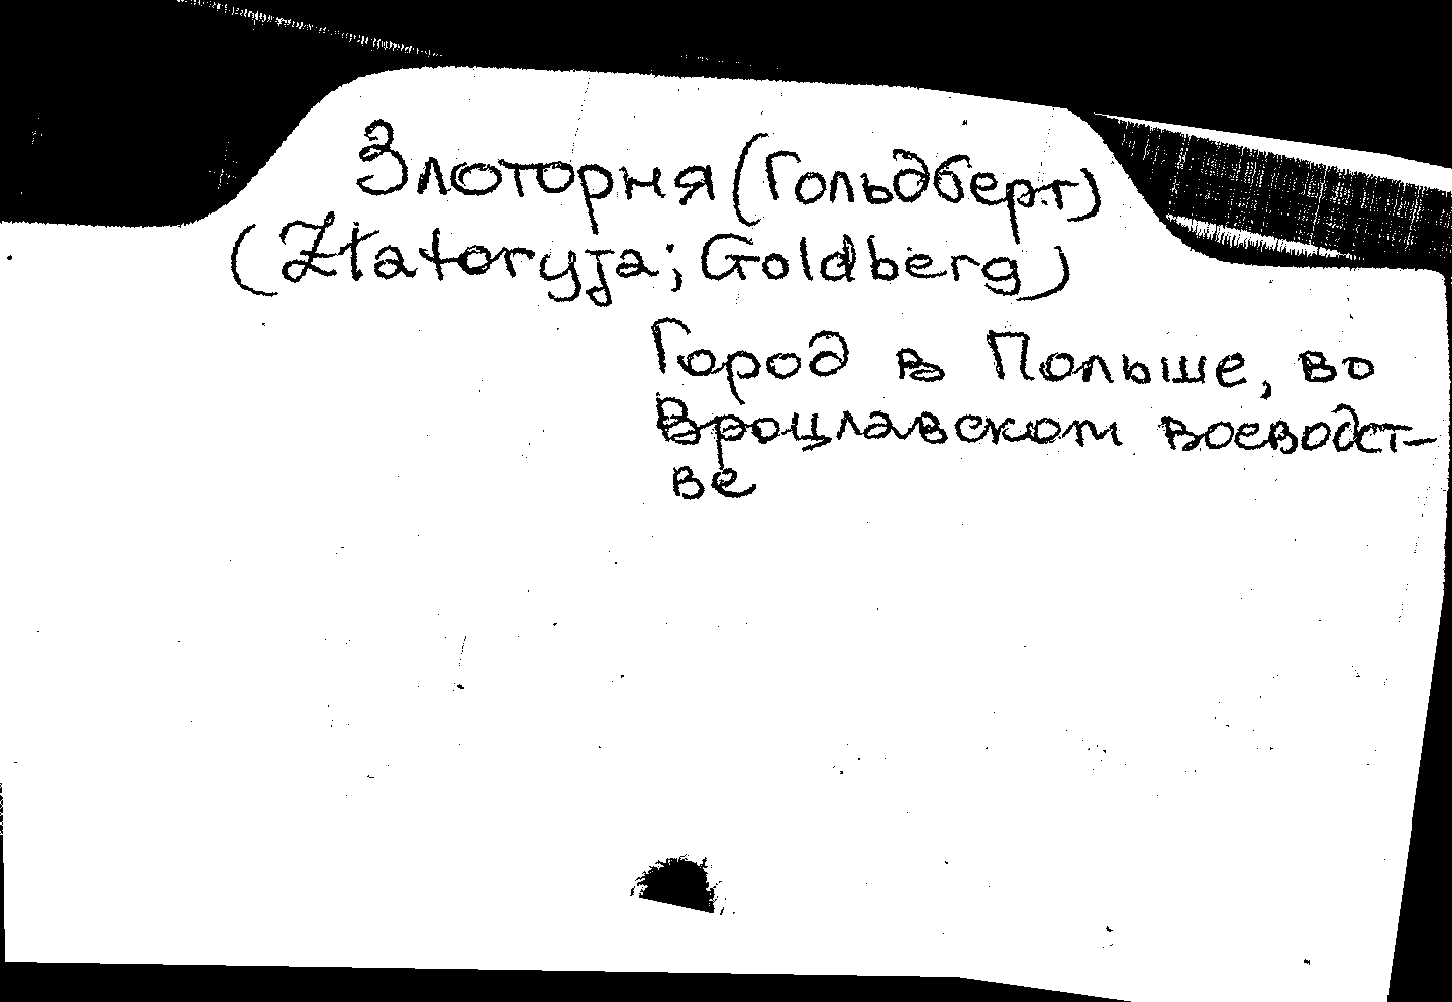 Злоторня (Гольдберг)
(Złatoryja; Goldberg)
Город в Польше, во
Вроцлавском воеводст-
ве